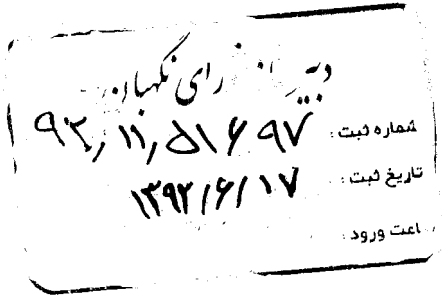 دبیرخانه شورای نگهبان
شماره ثبت : ۹۲/۱۱/۵۱۶۹۷
تاریخ ثبت : ۱۳۹۲/۶/۱۷
ساعت ورود :